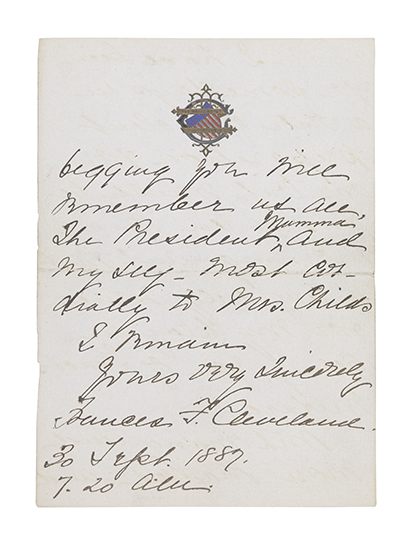 begging you will
remember us all,
The President, Mamma and
myself – most cor-
dially to Mrs. Childs
I remain
Yours very sincerely
Frances F. Cleveland.
30 Sept. 1887.
7.20 A.M.